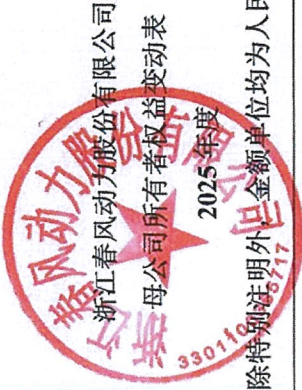 浙江春风动力股份有限公司
母公司所有者权益变动表
2025 年度
除特别注明外，金额单位均为人民
浙江春风动力股份有限公司